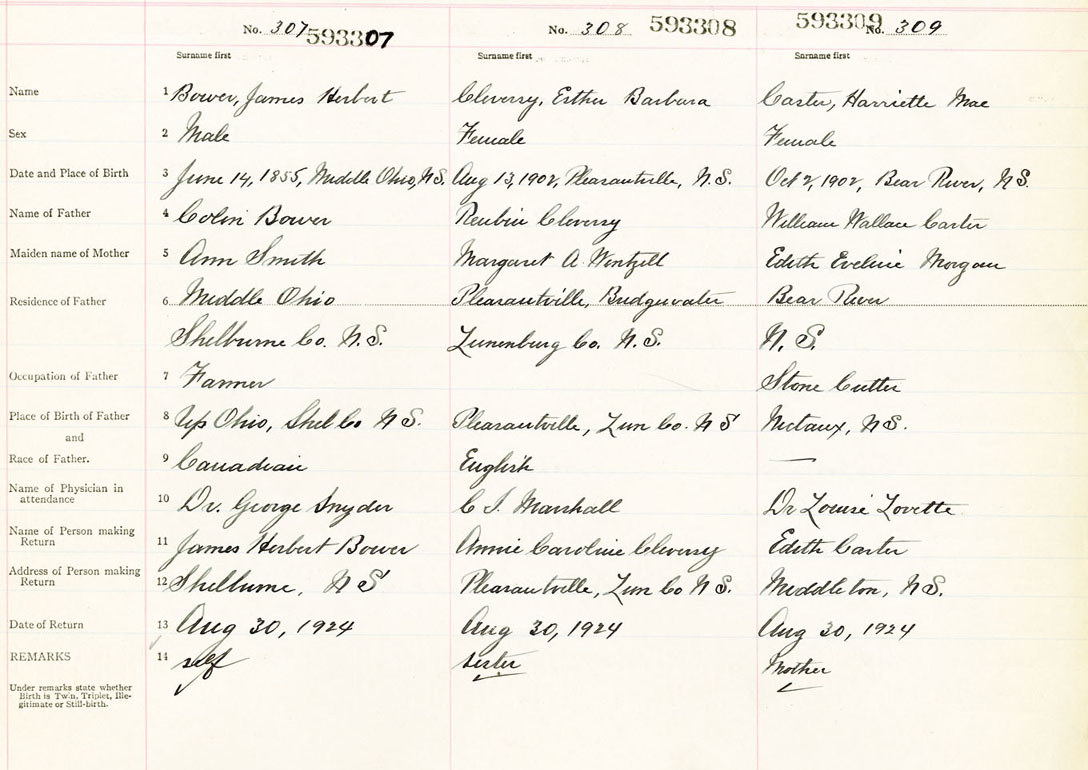 No. 307 593307 No. 308 593308 593309 No. 309
Surname first Surname first Surname first
Name 1 Bower, James Herbert Cleversy, Esther Barbara Carter, Harriette Mae
Sex 2 Male Female Female
Date and Place of Birth 3 June 14, 1855, Middle Ohio, N.S. Aug 13, 1902, Pleasantville, N.S. Oct 2, 1902, Bear River, N.S.
Name of Father 4 Colin Bower Reubin Cleversy William Wallace Carter
Maiden name of Mother 5 Ann Smith Margaret A. Wentzell Edith Eveline Morgan
Residence of Father 6 Middle Ohio Pleasantville, Bridgewater Bear River
Shelburne Co. N.S. Lunenburg Co. N.S. N.S.
Occupation of Father 7 Farmer Stone Cutter
Place of Birth of Father 8 Up Ohio, Shel Co N S. Pleasantville, Lun Co. N S Nictaux, N.S.
and
Race of Father. 9 Canadian English —
Name of Physician in
attendance 10 Dr. George Snyder C. S. Marshall Dr Louise Lovette
Name of Person making
Return 11 James Herbert Bower Annie Caroline Cleversy Edith Carter
Address of Person making
Return 12 Shelburne, N S Pleasantville, Lun Co N S. Middleton, N.S.
Date of Return 13 Aug 30, 1924 Aug 30, 1924 Aug 30, 1924
REMARKS 14 self sister Mother
Under remarks state whether
Birth is Twin, Triplet, Ille-
gitimate or Still-birth.